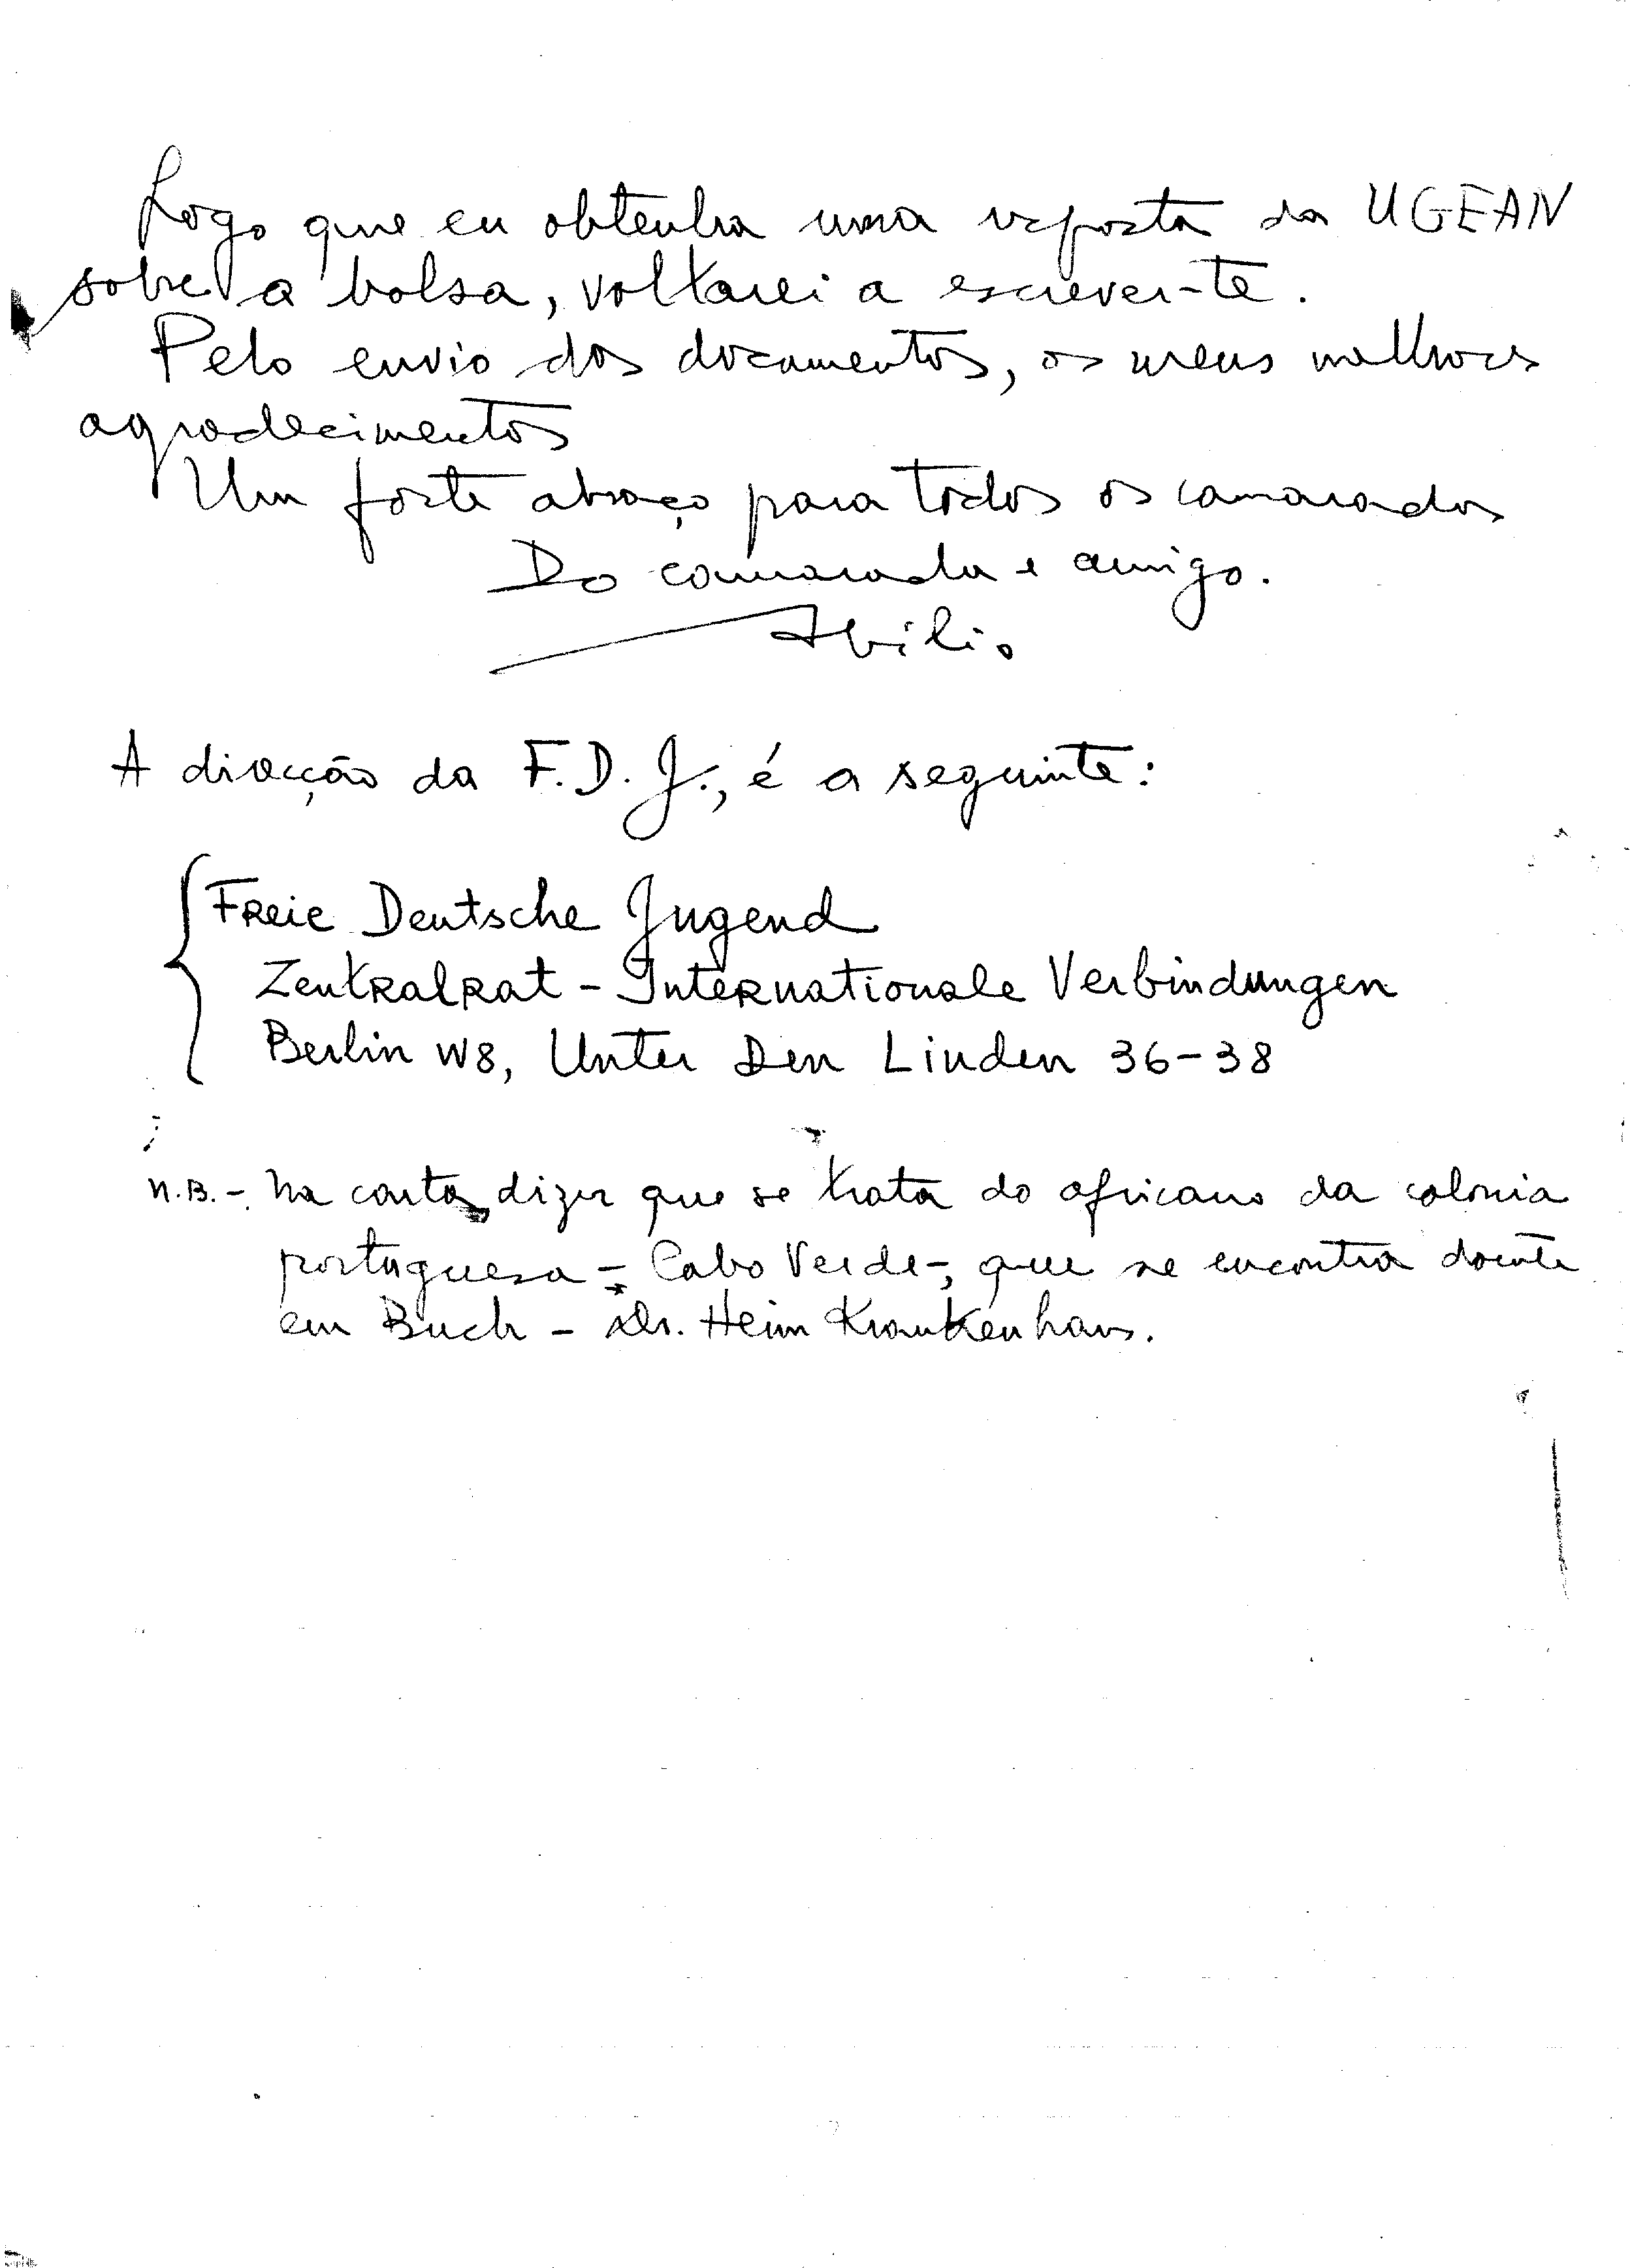 Logo que eu obtenha uma resposta da UGEAN
sobre a bolsa, voltarei a escrever-te.
Pelo envio dos documentos, os meus melhores
agradecimentos
Um forte abraço para todos os camaradas
Do camarada e amigo.
Abílio
A direcção da F.D.J., é a seguinte:
Freie Deutsche Jugend
Zentralrat - Internationale Verbindungen
Berlin W8, Unter Den Linden 36-38
N.B. - Na carta, dizer que se trata do africano da colonia
portuguesa - Cabo Verde -, que se encontra doente
em Buch - Dr. Heim Krankenhaus.